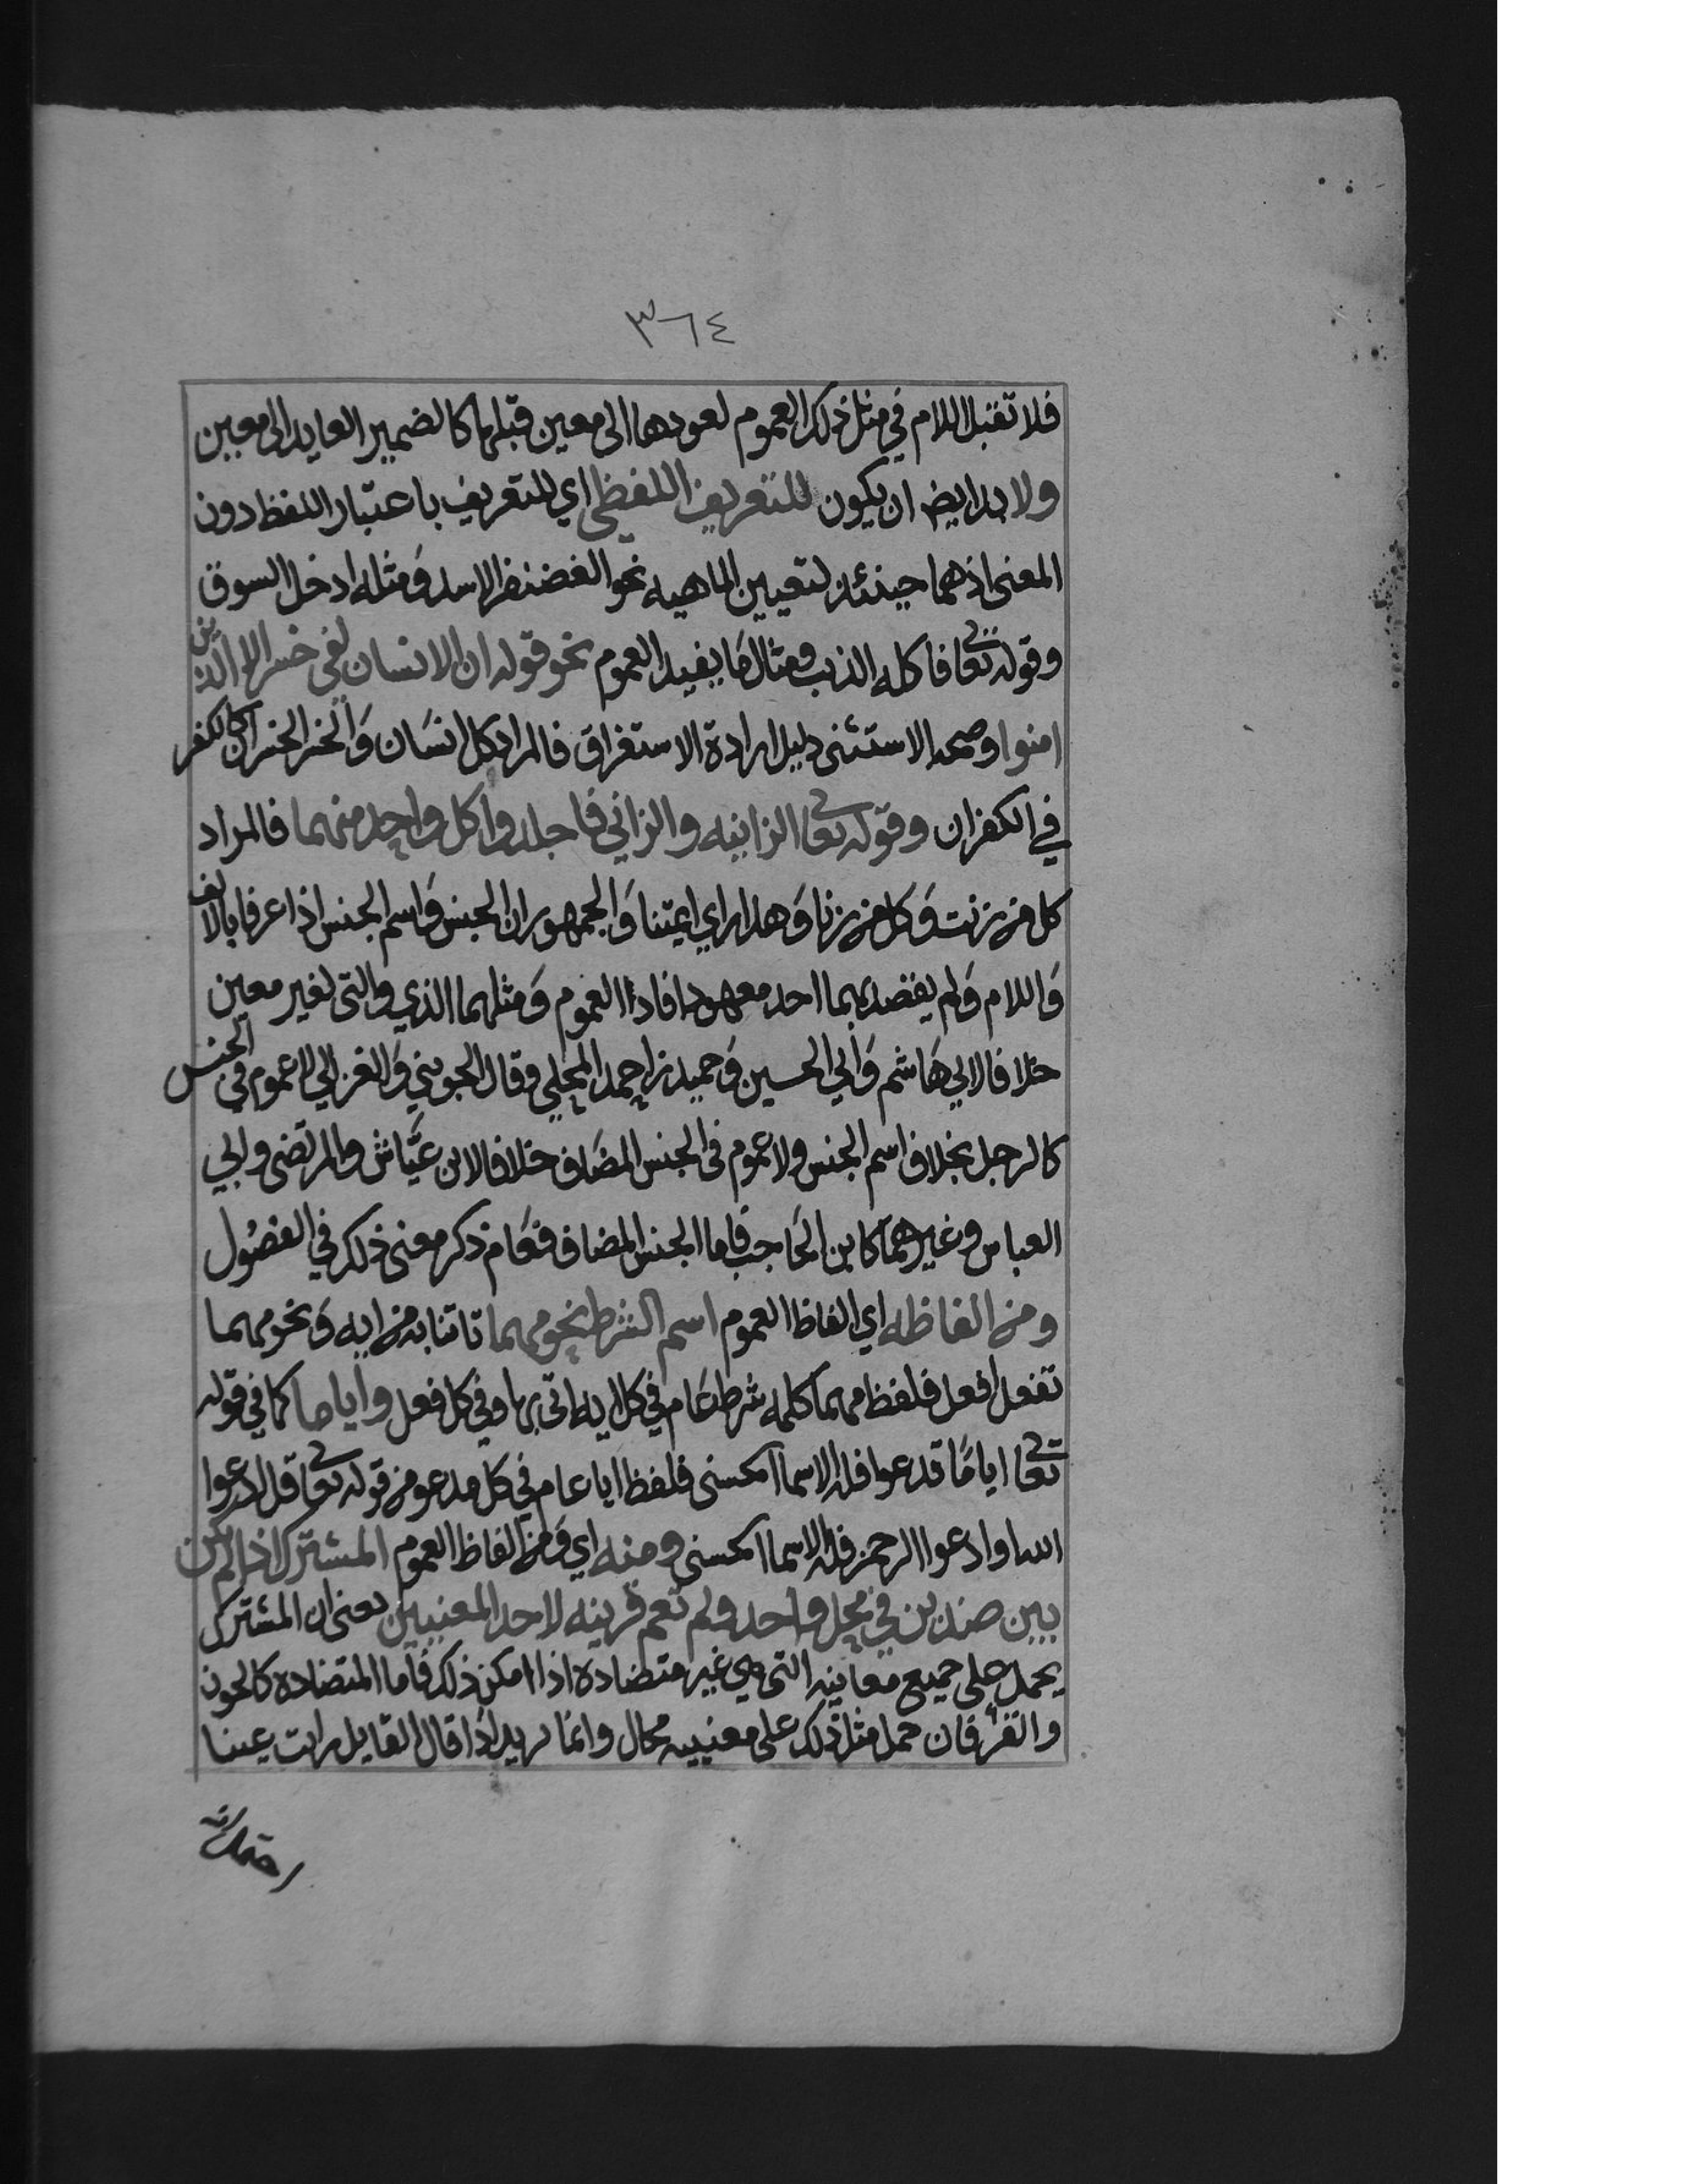 ٣٦٤
فلا تقبل اللام في مثل ذلك العموم لعودها الى معين قبلها كالضمير العايد الى معين
ولا بد ايضا ان يكون للتعريف اللفظي اي للتعريف باعتبار اللفظ دون
المعنى اذ هما حينئذ لتعيين الماهيه نحو الغضنفر الاسد ومثله ادخل السوق
وقوله تعا فاكله الذيب ومثال ما يفيد العموم نحو قوله ان الانسان لفي خسر الا الذين
امنوا وصحه الاستثنى دليل ارادة الاستغراق فالمراد كل انسان والخسر الخسران كالكفر
في الكفران وقوله تعا الزانيه والزاني فاجلدوا كل واحد منهما فالمراد
كل من زنت وكل من زنا وهذا راي ايمتنا والجمهور ان الجنس واسم الجنس اذا عرفا بالالف
واللام ولم يقصد بهما احد معهود افادا العموم ومثلهما الذي والتي لغير معين
خلافا لابي هاشم وابي الحسين وحميد بن احمد المحلي وقال الجويني والغزالي لا عموم في الجنس
كالرجل بخلاف اسم الجنس ولا عموم في الجنس المضاف خلافا لابن عياش والمرتضى وابي
العباس وغيرهما كابن الحاجب فاما الجنس المضاف فعام ذكر معنى ذلك في الفصول
ومن الفاظه اي الفاظ العموم اسم الشرط نحو مهما تاتنا به من ايه ونحو مهما
تفعل افعل فلفظ مهما كلمه شرط عام في كل ايه اتى بها وفي كل فعل واياما كما في قوله
تعا اياما تدعوا فله الاسما الحسنى فلفظ ايا عام في كل مدعو من قوله تعا قل ادعوا
الله او ادعوا الرحمن فله الاسما الحسنى ومنه اي ومن الفاظ العموم المشترك اذا لم يكن
بين ضدين في محل واحد ولم تعم قرينه لاحد المعنيين يعني ان المشترك
يحمل على جميع معانيه التي هي غير متضادة اذا امكن ذلك فاما المتضاده كالجون
والقرء فان حمل مثل ذلك على معنييه محال وانما يريد اذا قال القايل رايت عينا